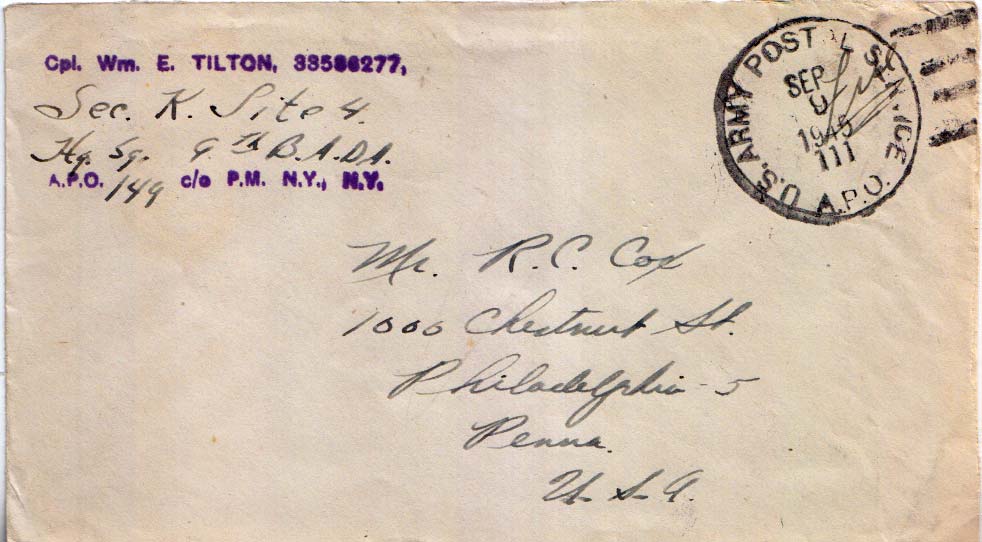 Cpl. Wm. E. TILTON, 33586277,
Sec. K. Site 4.
Hq. Sq. 9th B.A.D.A.
A.P.O. 149 c/o P.M. N.Y., N.Y.
U.S. ARMY POSTAL SERVICE A.P.O.
SEP
9
1945
111
Mr. R. C. Cox
1000 Chestnut St.
Philadelphia - 5
Penna.
U. S. A.